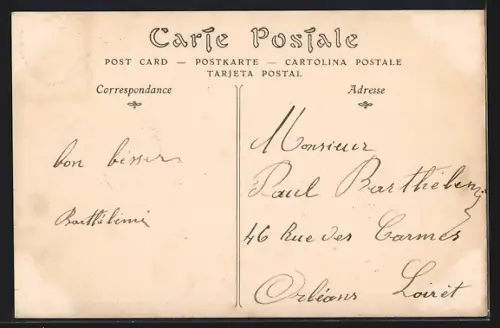 Carte Postale
POST CARD — POSTKARTE — CARTOLINA POSTALE
TARJETA POSTAL
Correspondance
Adresse
bon
Barthélémi
Monsieur
Paul Barthélemy
46 Rue des Carmes
Orléans Loiret